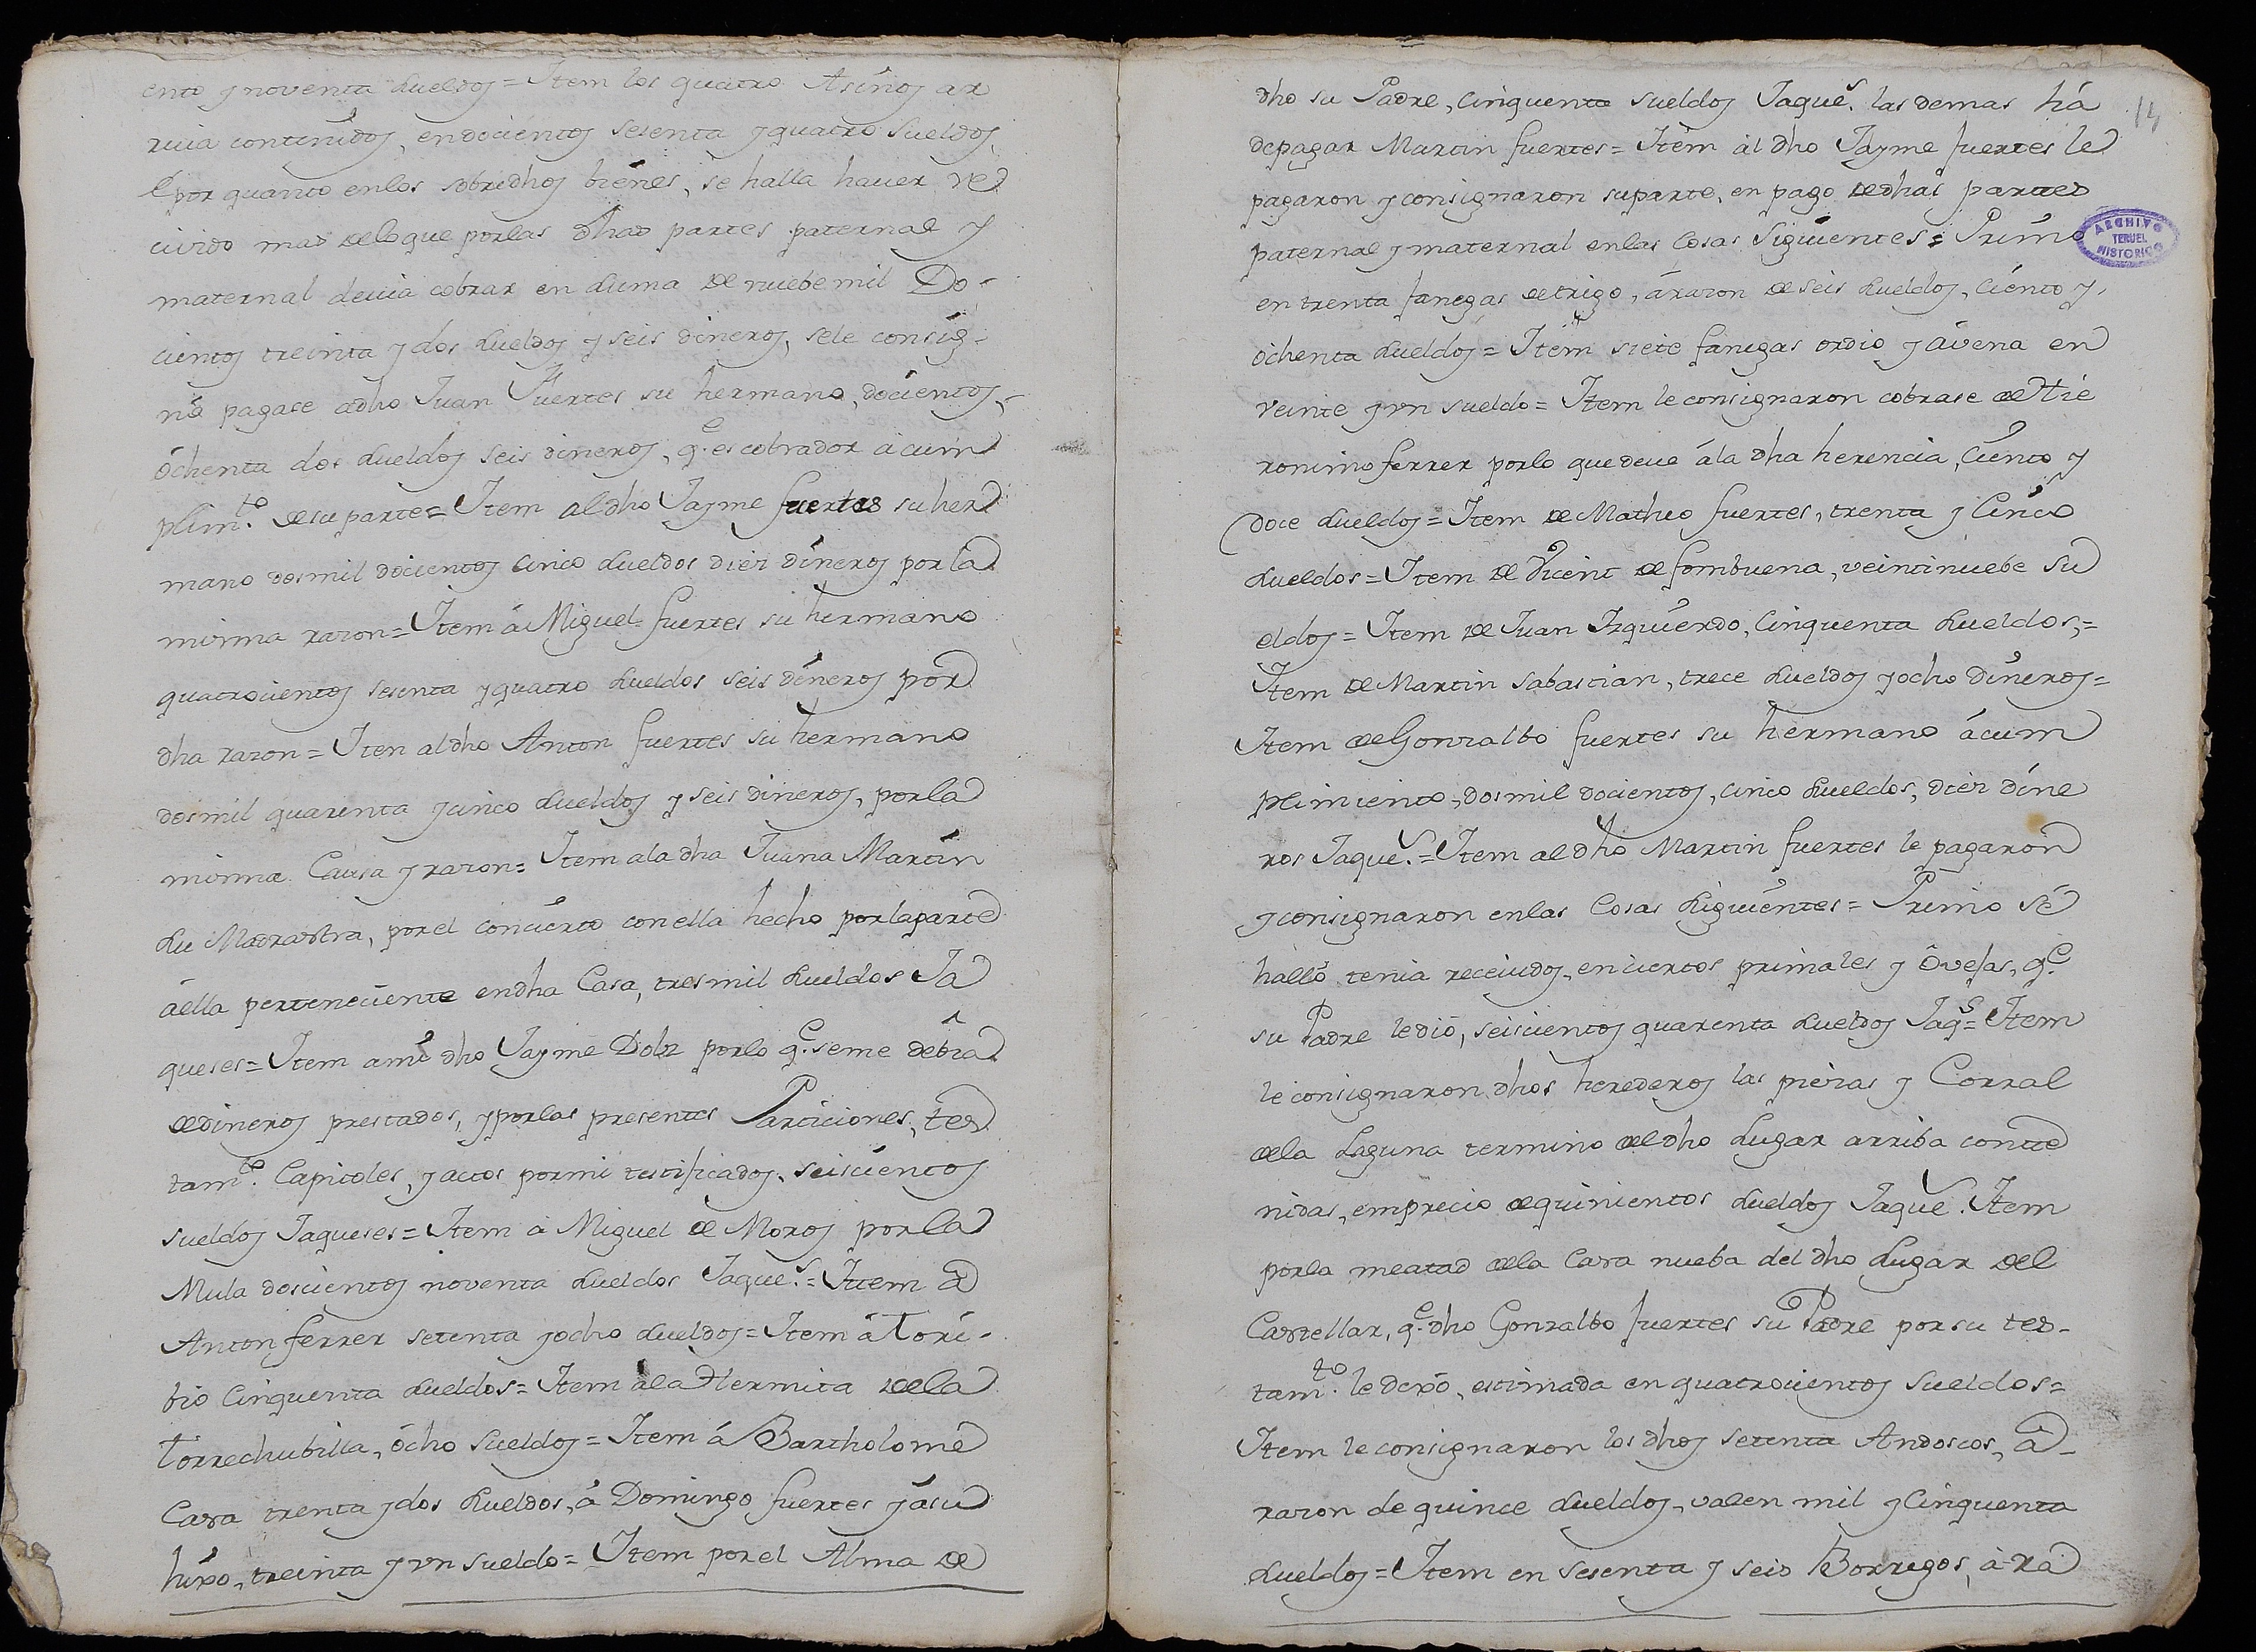 ento y noventa sueldos = Item los quatro Asinos ar
riua contenidos, en docientos sesenta y quatro sueldos,
è por quanto en los sobredhos bienes, se halla hauer re
ciuido mas de lo que por las dhas partes paternal y
maternal deuia cobrar en suma de nuebe mil Do-
cientos treinta y dos sueldos y seis dineros, se le consig-
nó pagase a dho Juan Fuertes su hermano, docientos,
óchenta dos sueldos seis dineros, q.e es cobrador à cum
plim.to de su parte = Item al dho Jayme fuertes su her
mano dos mil docientos cinco sueldos diez dineros por la
misma razon = Item á Miguel fuertes su hermano
quatrocientos sesenta y quatro sueldos seis dineros por
dha razon = Iten al dho Anton fuertes su hermano
dos mil quarenta y cinco sueldos y seis dineros, por la
misma Causa y razon = Item a la dha Juana Martin
su Madrastra, por el concierto con ella hecho por la parte
áella perteneciente en dha Casa, tres mil sueldos Ja
queses = Item a mi dho Jayme Dolz por lo q.e se me debia
de dineros prestados, y por las presentes Particiones, tes
tam.to Capitoles, y actos por mi testificados, seiscientos
sueldos Jaqueses = Item à Miguel de Moros por la
Mula doscientos noventa sueldos Jaque.s = Ittem à
Anton ferrer setenta y ocho sueldos = Item á Tori-
bio Cinquenta sueldos = Item à la Hermita de la
Torrechubilla, ócho sueldos = Item á Bartholomè
Casa trenta y dos sueldos, à Domingo fuertes y ásu
hixo, treinta y vn sueldo = Item por el Alma de
14
dho su Padre, cinquenta sueldos Jaque.s las demas há
de pagar Martin fuertes = Item al dho Jayme fuertes le
pagaron y consignaron su parte, en pago de dhas partes
paternal y maternal en las Cosas Siguientes = Primo
en trenta fanegas de trigo, á razon de seis sueldos, ciento y,
óchenta sueldos = Item siete fanegas ordio y avena en
veinte y vn sueldo = Item le consignaron cobrase de Hie
ronimo ferrer por lo que deue á la dha herencia, Ciento y
doce sueldos = Item de Matheo fuertes, trenta y Cinco
sueldos = Item de Vicent de fombuena, veintinuebe su
eldos = Item de Juan Izquierdo, Cinquenta sueldos, =
Item de Martin Sabastian, trece sueldos y ocho dineros =
Item de Gonzalbo fuertes su hermano á cum
plimiento, dos mil docientos, cinco sueldos, diez dine
ros Jaque.s = Item al dho Martin fuertes le pagaron
y consignaron en las Cosas siguientes = Primo sé
halló tenia receiudos, en ciertos primales y Óvejas, q.e
su Padre le dió, seiscientos quarenta sueldos Jaq.s = Item
le consignaron dhos herederos las piezas y Corral
de la Laguna termino del dho Lugar arriba conte
nidas, em precio de quinientos sueldos Jaque.s Item
por la meatad de la Casa nueba del dho Lugar del
Castellar, q.e dho Gonzalbo fuertes su Padre por su tes-
tam.to le dexó, estimada en quatrocientos sueldos =
Item le consignaron los dhos setenta Andoscos, à
razon de quince sueldos, valen mil y Cinquenta
sueldos = Item en sesenta y seis Borregos, à ra
ARCHIVO
TERUEL
HISTORICO